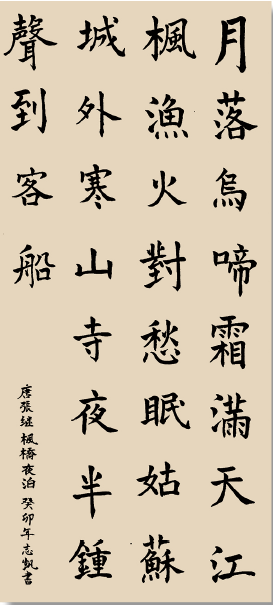 月落烏啼霜滿天江
楓漁火對愁眠姑蘇
城外寒山寺夜半鍾
聲到客船
唐張継楓橋夜泊 癸卯年志凱書